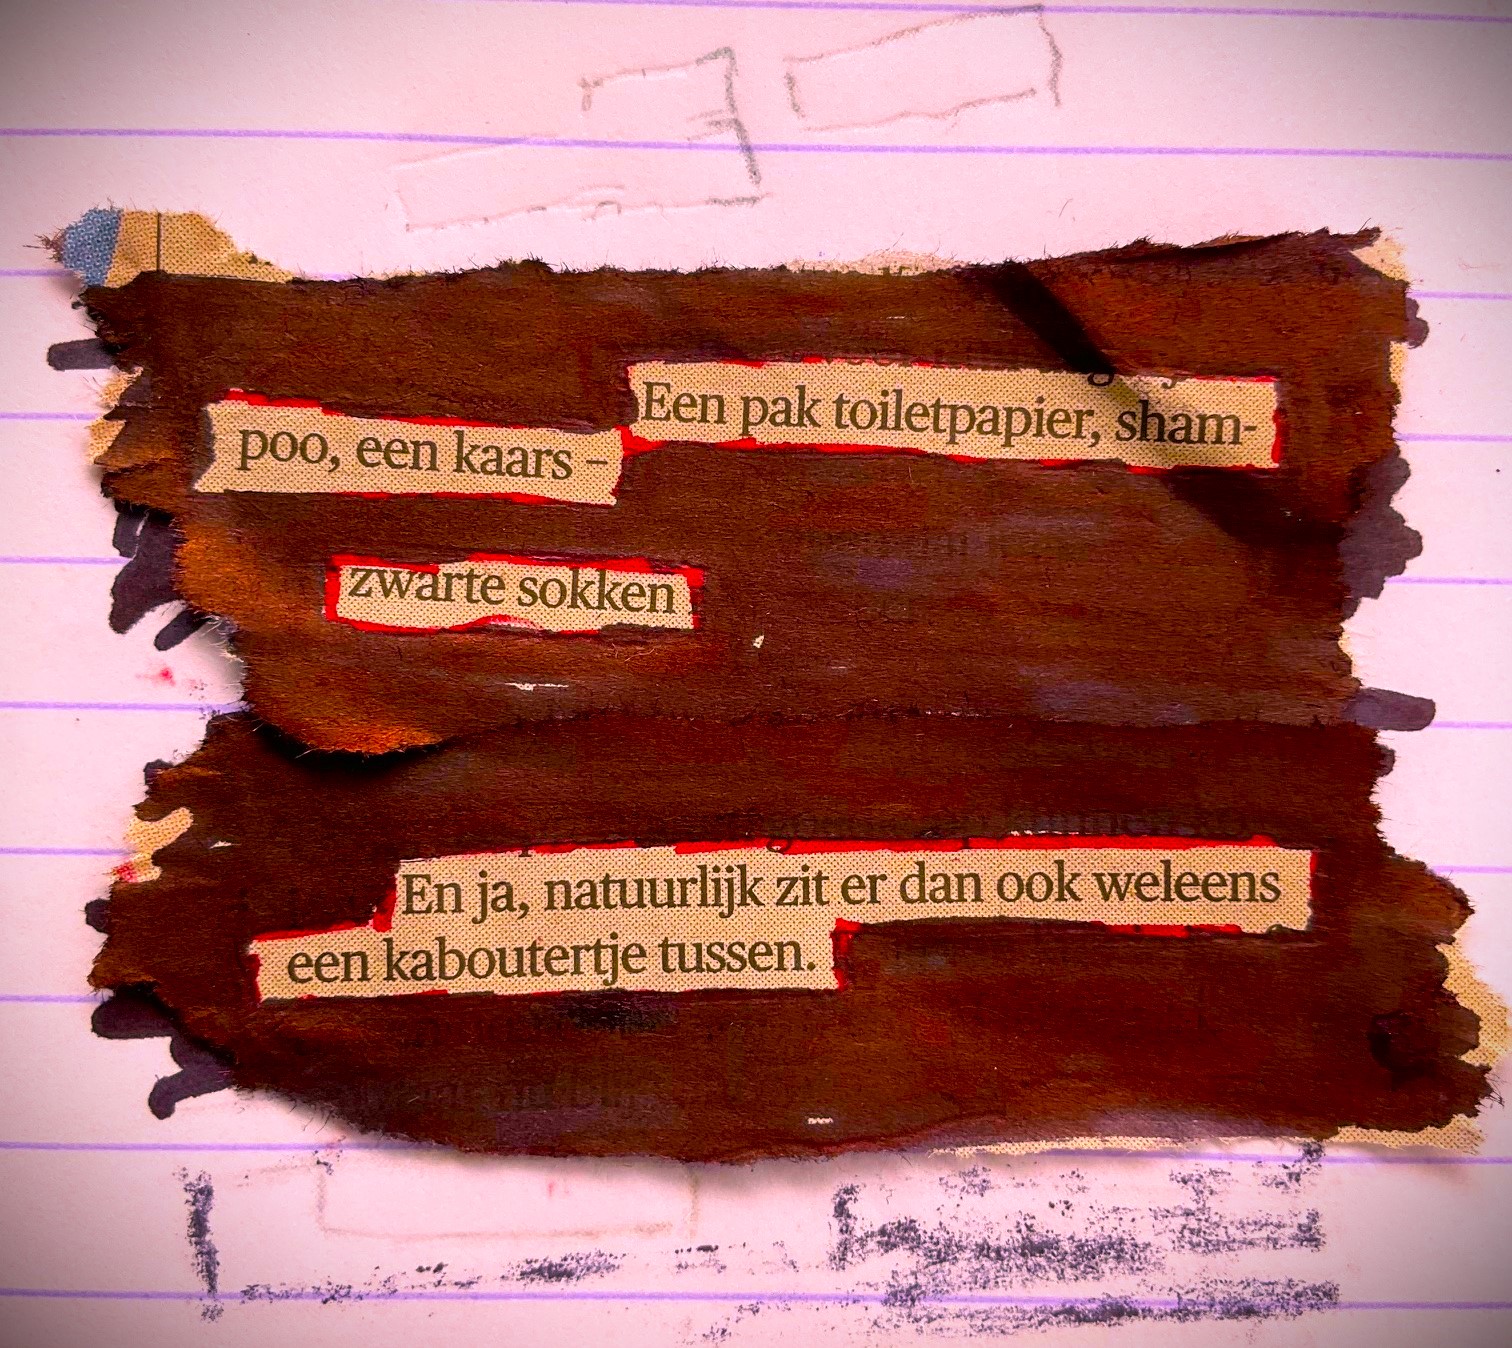 Een pak toiletpapier, sham-
poo, een kaars –
zwarte sokken
En ja, natuurlijk zit er dan ook weleens
een kaboutertje tussen.